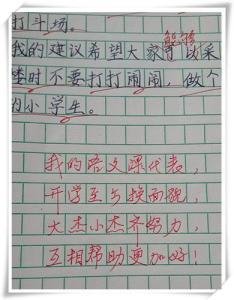 打斗场。
我的建议希望大家可以采
时不要打打闹闹，做个
小学生。
我的语文课代表，
开学至今换面貌，
大杰小杰齐努力，
互相帮助更加好！